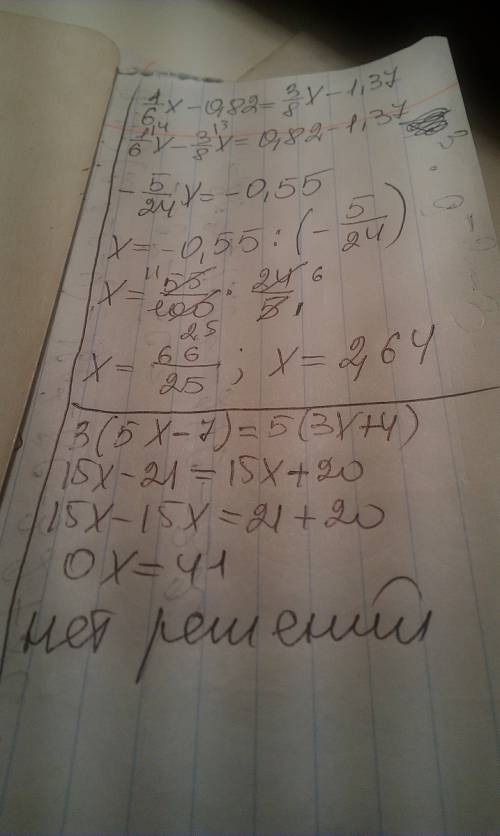 1/6 x - 0,82 = 3/8 x - 1,37
1/6 \4 x - 3/8 \3 x = 0,82 - 1,37
- 5/24 x = - 0,55
x = - 0,55 : (- 5/24)
x = 11 55/100 25 · 24/5 6
x = 66/25 ; x = 2,64
3(5x-7) = 5(3x+4)
15x - 21 = 15x + 20
15x - 15x = 21 + 20
0x = 41
нет решений